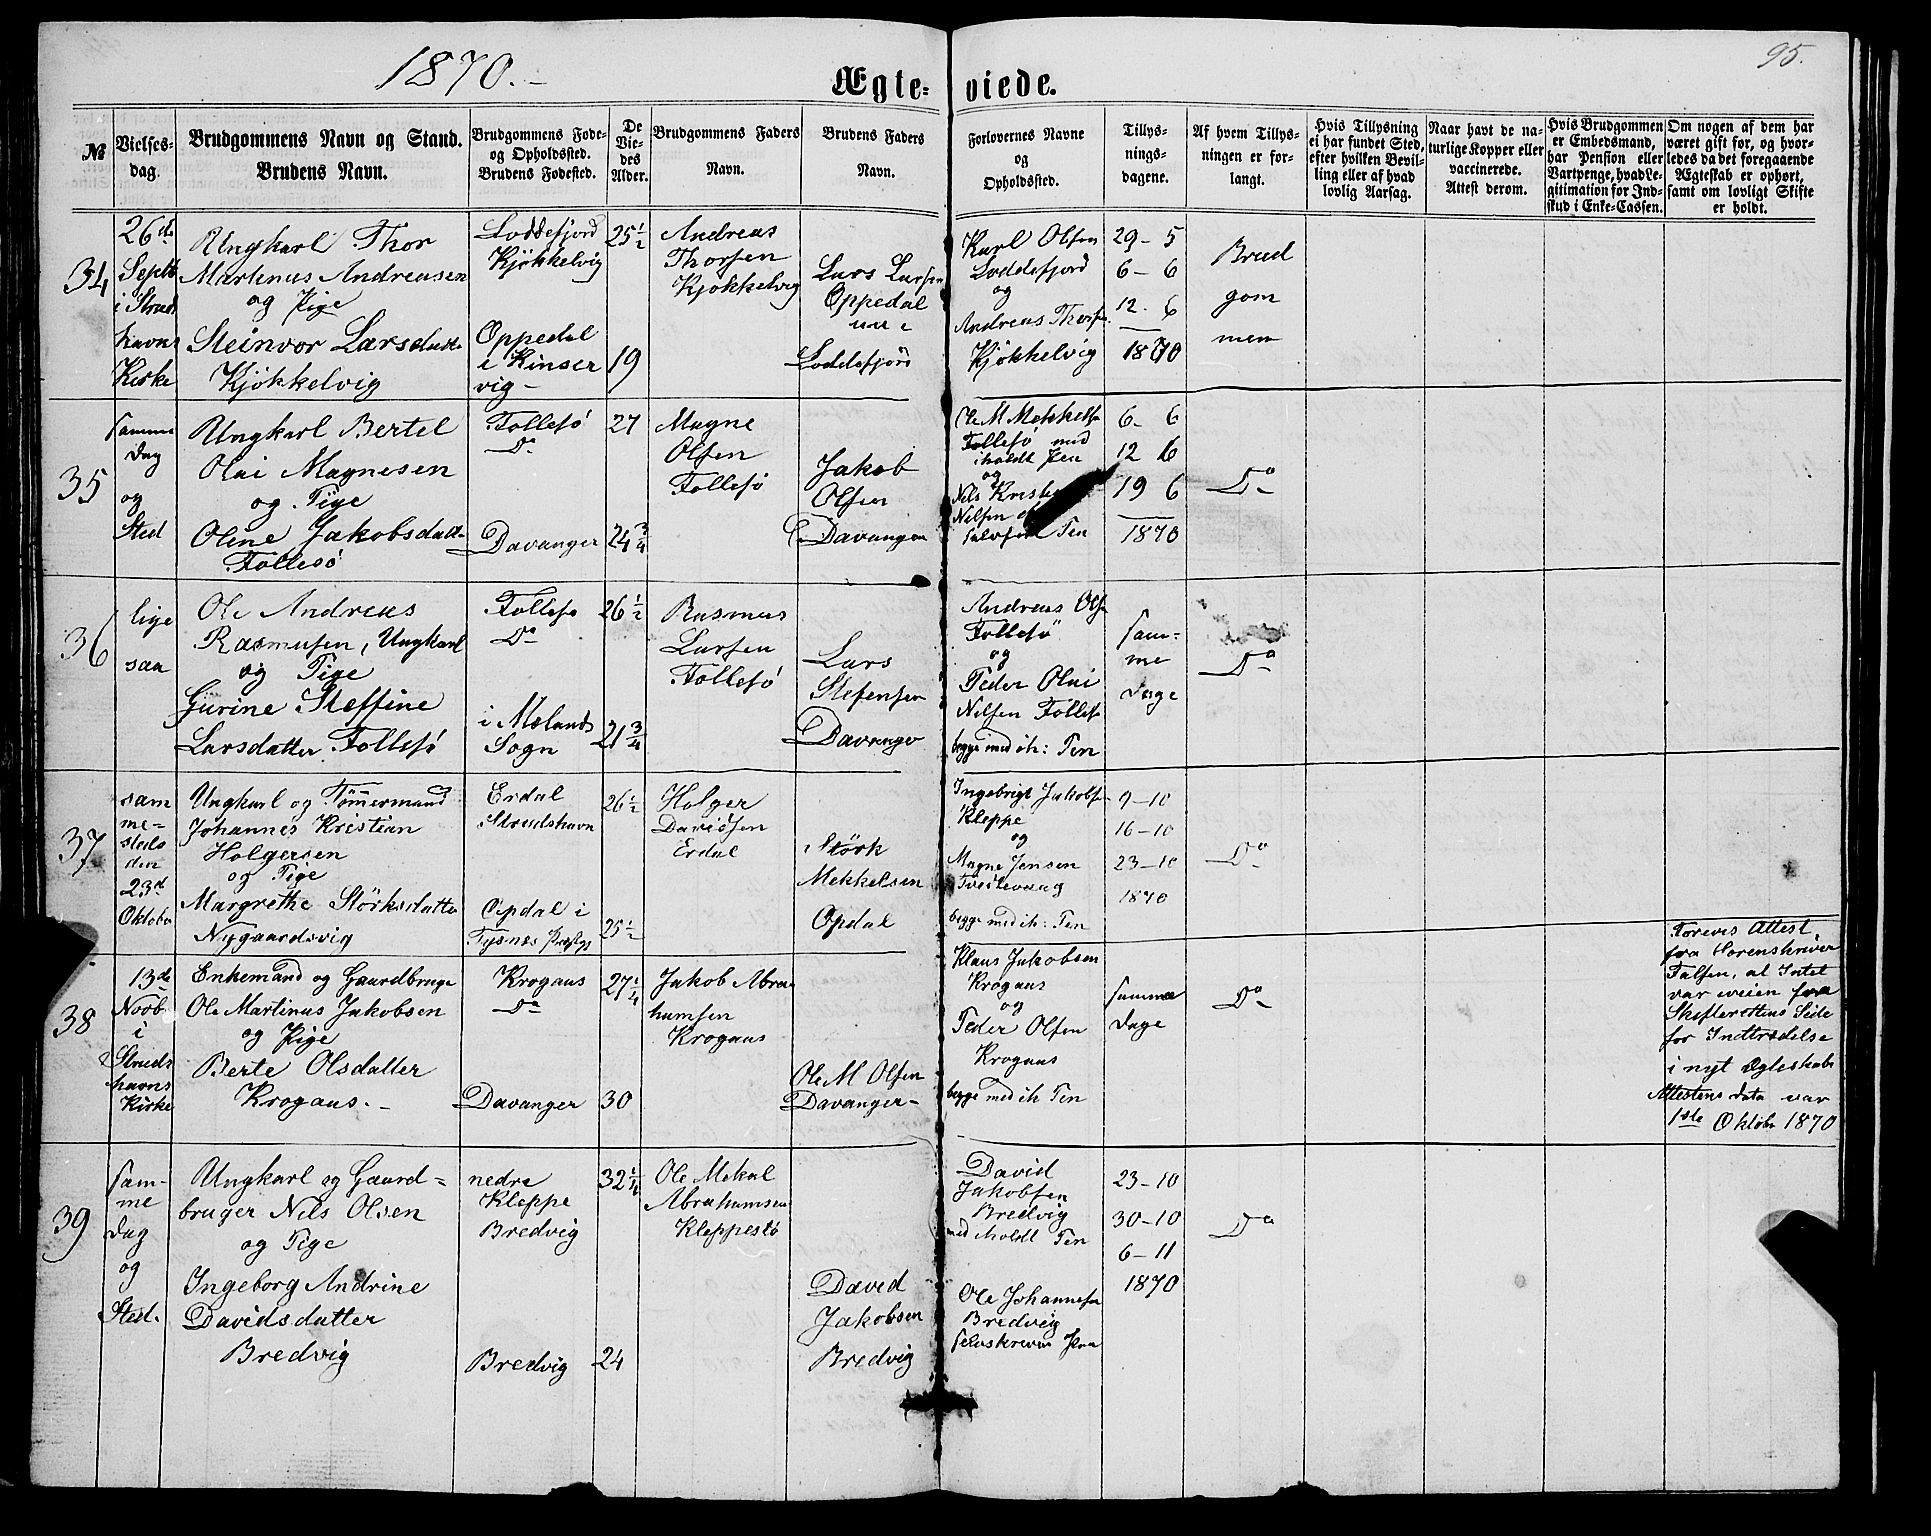 1870.-
Ægte-
viede.
95.
№
Vielses-
dag.
Brudgommens Navn og Stand.
Brudens Navn.
Brudgommens Føde-
og Opholdssted.
Brudens Fødested.
De
Vie-
des
Alder.
Brudgommens Faders
Navn.
Brudens Faders
Navn.
Forlovernes Navne
og
Opholdssted.
Tillys-
nings-
dagene.
Af hvem Tillys-
ningen er for-
langt.
Hvis Tillysning
ei har fundet Sted,
efter hvilken Bevil-
ling eller af hvad
lovlig Aarsag.
Naar havt de na-
turlige Kopper eller
vaccinerede.
Attest derom.
Hvis Brudgommen
er Embedsmand,
har Pension eller
Vartpenge, hvad Le-
gitimation for Ind-
skud i Enke-Cassen.
Om nogen af dem har
været gift for, og hvor-
ledes da det foregaaende
Ægteskab er ophørt,
samt om lovligt Skifte
er holdt.
34
26de
Septb
i Strud
havns
Kirke
Ungkarl Thor
Martinus Andreasen
og Pige
Steinvor Larsdatt
Kjökkelvig
Loddefjord
Kjökkelvig
Oppedal
i Kinser
vig-
25½
19
Andreas
Thorsen
Kjökkelvig
Lars Larsen
Oppedal
Loddefjord
Karl Olsen
Loddefjord
og
Andreas Thorsen
Kjökkelvig
29-5
6-6
12-6
1870
Brud
gom
men
35
samme
Dag
og
Sted
Ungkarl Bertel
Olai Magnesen
og Pige
Oline Jakobsdatt
Follesö
Follesö
Do
Davanger
27
24¾
Magne
Olsen
Follesö
Jakob
Olsen
Davanger
Ole M Mekkels
Follesö med
iholdt Pen
og
Nils
Nilsen
Pen
6-6
12 6
19 6
1870
Do
36
lige
saa
Ole Andreas
Rasmusen, Ungkarl
og Pige
Gurine Steffine
Larsdatter Follesö
Follesö
Do
i Mælands
Sogn
26½
21¾
Rasmus
Larsen
Follesö
Lars
Stefensen
Davanger
Andreas Olsen
Follesö
og
Peder Olai
Nilsen Follesö
begge med ih: Pen
sam-
me
Dage
Do
37
sam
me-
steds
den
23d
Oktober
Ungkarl og Tømmermand
Johannes Kristian
Holgersen
og Pige
Margrethe Störksdatte
Nygaardsvig
Erdal
Strudshavn
Opdal i
Tysnæs Præstgj
26½
25½
Holger
Davidsen
Erdal
Störk
Mekkelsen
Opdal
Ingebrigt Jakobsen
Kleppe
og
Magne Jensen
begge med ih: Pen
9-10
16-10
23-10
1870
Do
38
13de
Novb
i
Struds
havns
Kirke
Enkemand og Gaardbruge
Ole Martinus Jakobsen
og Pige
Berte Olsdatter
Krogaas.-
Krogaas
Do
Davanger
27¼
30
Jakob Abra
hamsen
Krogaas
Ole M Olsen
Davanger-
Klaus Jakobsen
Krogaas
og
Peder Olsen
Krogaas
begge med ih Pen
samme
Dage
Do
Forevis Attest
fra Sorenskriver
Falsen, at Intet
var iveien fra
Skifterettens Side
for Indtrædelse
i nyt Ægteskab
Attestens Data var
1ste Oktober 1870
39
sam-
me
Dag
og
Sted.
Ungkarl og Gaard-
bruger Nils Olsen
og Pige
Ingeborg Andrine
Davidsdatter
Bredvig
nedre
Kleppe
Bredvig
Bredvig
32¼
24
Ole Mekal
Abrahamsen
Kleppestö
David
Jakobsen
Bredvig
David
Jakobsen
Bredvig
med iholdt Pen
Ole Johannesen
Bredvig
23-10
30-10
6-11
1870
Do